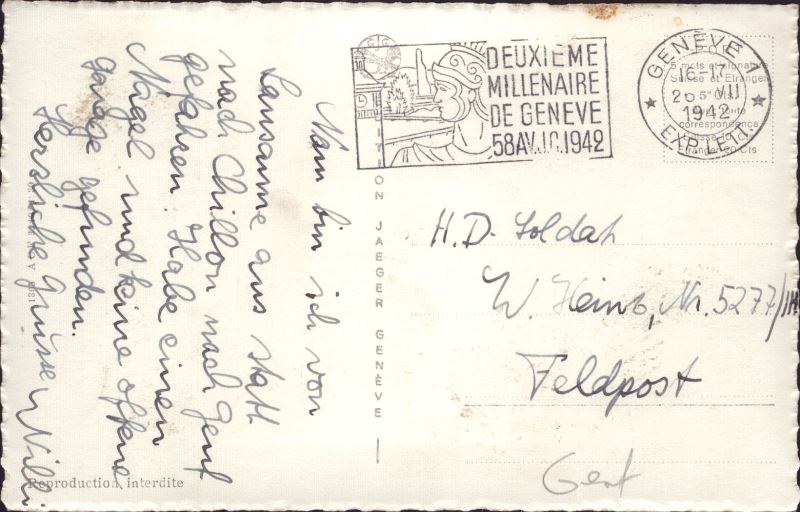 Nun bin ich von
Lausanne aus statt
nach Chillon nach Genf
gefahren. Habe einen
Nagel und keine offene
Garage gefunden.
Herzliche Grüsse Willi
Reproduction interdite
ON JAEGER GENÈVE
DEUXIEME
MILLENAIRE
DE GENEVE
58 AV. J.C. 1942
GENÈVE
16-17
25 VII
1942
EXP. LETT.
5 mots et signature
Suisse et Etranger
correspondence
Etranger 20 Cts
H.D. Soldat
W. Heinb, Nr. 5277/
Feldpost
Genf